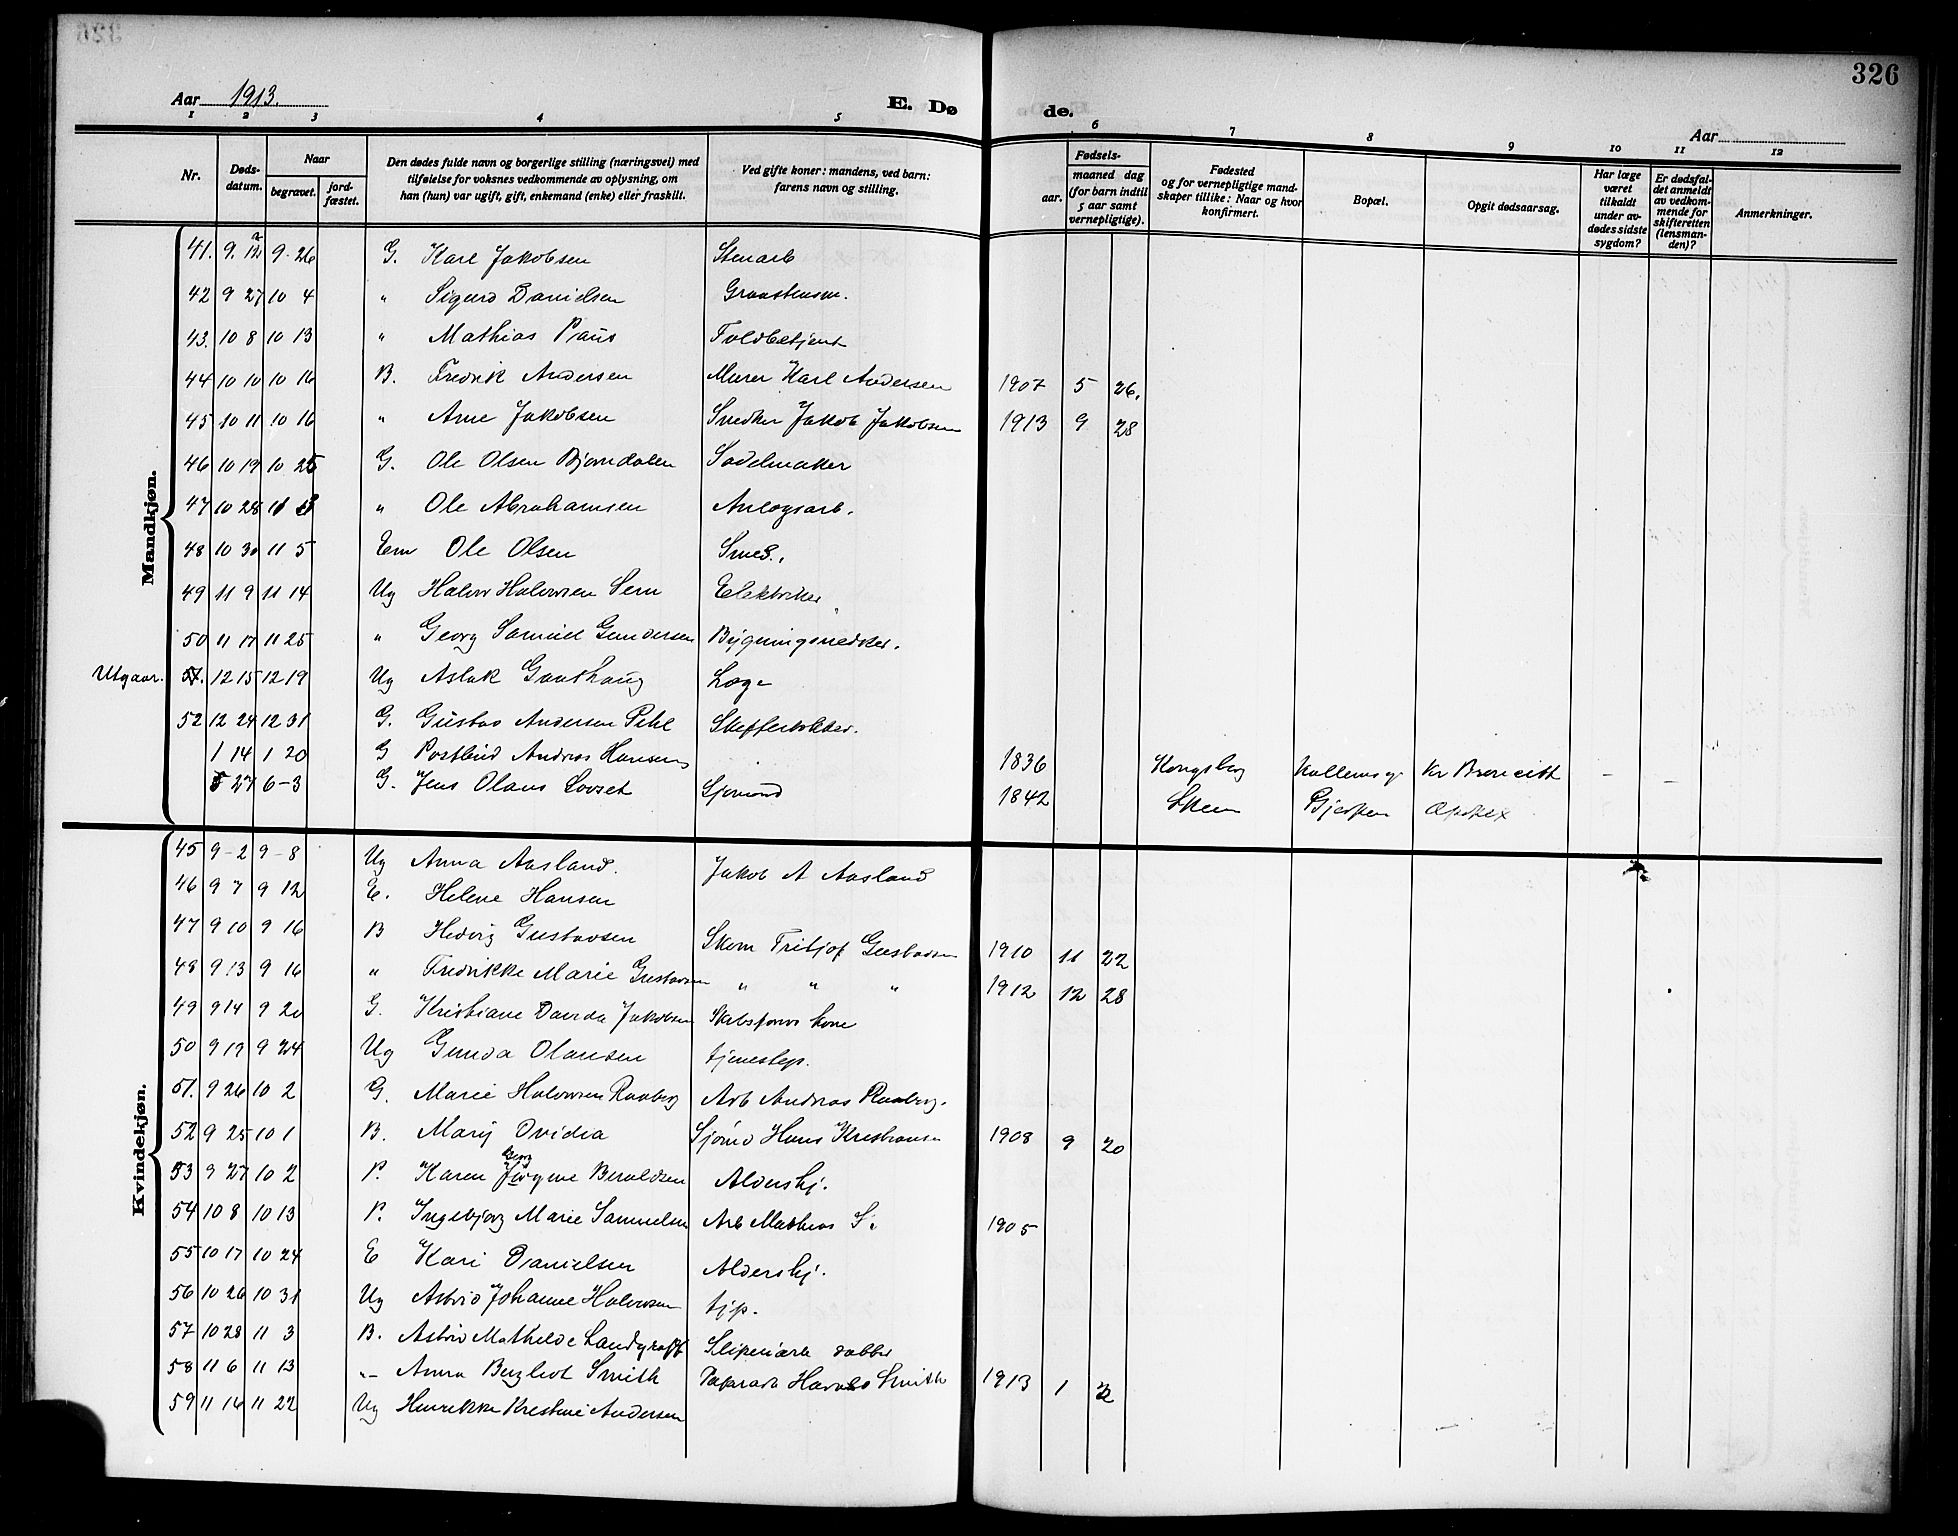 326
Aar 1913.
E. Dø de.
Aar
1 2 3 4 5 6 7 8 9 10 11 12
Nr. Døds-datum. Naar begravet. jord-fæstet. Den dødes fulde navn og borgerlige stilling (næringsvei) med tilføielse for voksnes vedkommende av oplysning, om han (hun) var ugift, gift, enkemand (enke) eller fraskilt. Ved gifte koner: mandens, ved barn: farens navn og stilling. Fødsels- aar. maaned dag (for barn indtil 5 aar samt vernepligtige). Fødested og for vernepligtige mandskaper tillike: Naar og hvor konfirmert. Bopæl. Opgit dødsaarsag. Har læge været tilkaldt under avdødes sidste sygdom? Er dødsfaldet anmeldt av vedkommende for skifteretten (lensmanden)? Anmerkninger.
Mandkjøn.
41. 9. 12 9. 26 G. Karl Jakobsen Stenarb
42 9 27 10 4 " Sigurd Danielsen
43. 10 8 10 13 " Mathias Paus Toldbetjent
44 10 10 10 16 B. Fredrik Andersen Murer Karl Andersen 1907 5 26.
45 10 11 10 16 " Arne Jakobsen Snedker Jakob Jakobsen 1913 9 28
46 10 19 10 25 G. Ole Olsen Bjorndalen Sadelmaker
47 10 28 11 3 " Ole Abrahamsen Anlægsarb.
48 10 30 11 5 Em Ole Olsen Smed.
49 11 9 11 14 Ug Halvor Halvorsen Sem Elektriker
50 11 17 11 25 " Georg Samuel Gundersen Bygningsnedker.
Utgaar. 51. 12 15 12 19 Ug Aslak Gaathaug Læge
52 12 24 12 31 G. Gustav Andersen Pihl
1 14 1 20 G Postbud Andreas Hansen 1836 Kongsberg
5 27 6-3 G. Jens Olaus Lovset Sjomand 1842 Skien Gjerpen
Kvindekjøn.
45 9-2 9-8 Ug Anna Aasland. Jakob A Aasland
46 9 7 9 12 E. Helene Hansen
47 9 10 9 16 B Hedvig Gustavsen Skom Fritjof Gustavsen 1910 11 22
48 9 13 9 16 " Fredrikke Marie Gustavsen " " " 1912 12 28
49 9 14 9 20 G. Kristiane Davida Jakobsen kone
50 9 19 9 24 Ug Gunda Olausen tjenestep.
51. 9 26 10 2 G. Marie Halvorsen Raaberg Arb Andreas Raaberg.
52 9 25 10 1 B. Mary Ovidia Sjømd Hans Kristiansen 1908 9 20
53 9 27 10 2 P. Karen Georg Jørgine Beroldsen Aldershj.
54 10 8 10 13 P. Ingebjorg Marie Samuelsen Arb Mathias S. 1905
55 10 17 10 24 E Kari Danielsen Aldershj.
56 10 26 10 31 Ug Astrid Johanne Halvorsen tjp.
57 10 28 11 3 B. Astrid Mathilde Landgraff
58 11 6 11 13 "- Anna Bergliot Smith Papirarb Harald Smith 1913 1 2
59 11 14 11 22 Ug Henrikke Kristine Andersen